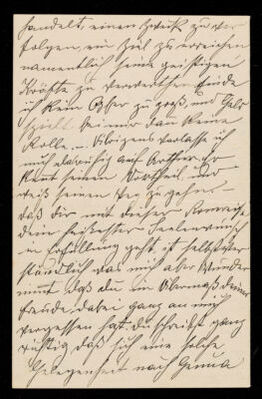 handelt, einen Zweck zu ver-
folgen, ein Ziel zu erreichen
namentlich seine geistigen
Kräfte zu verwerthen finde
ich kein Opfer zu groß, und Geld
spielt bei mir dann keine
Rolle. – Übrigens verlasse ich
mich darin auf Arthur, er
kennt seinen Vortheil und
weiß seinen Weg zu gehen –
daß Dir mit dieser Romreise
dein heißester Seelenwunsch
in Erfüllung geht, ist selbstver-
ständlich was mich aber Wunder
nimmt daß du im Übermaß deiner
Freude, dabei ganz an mich
vergessen hast. Du schreibst ganz
richtig daß sich eine solche
Gelegenheit nach Genua